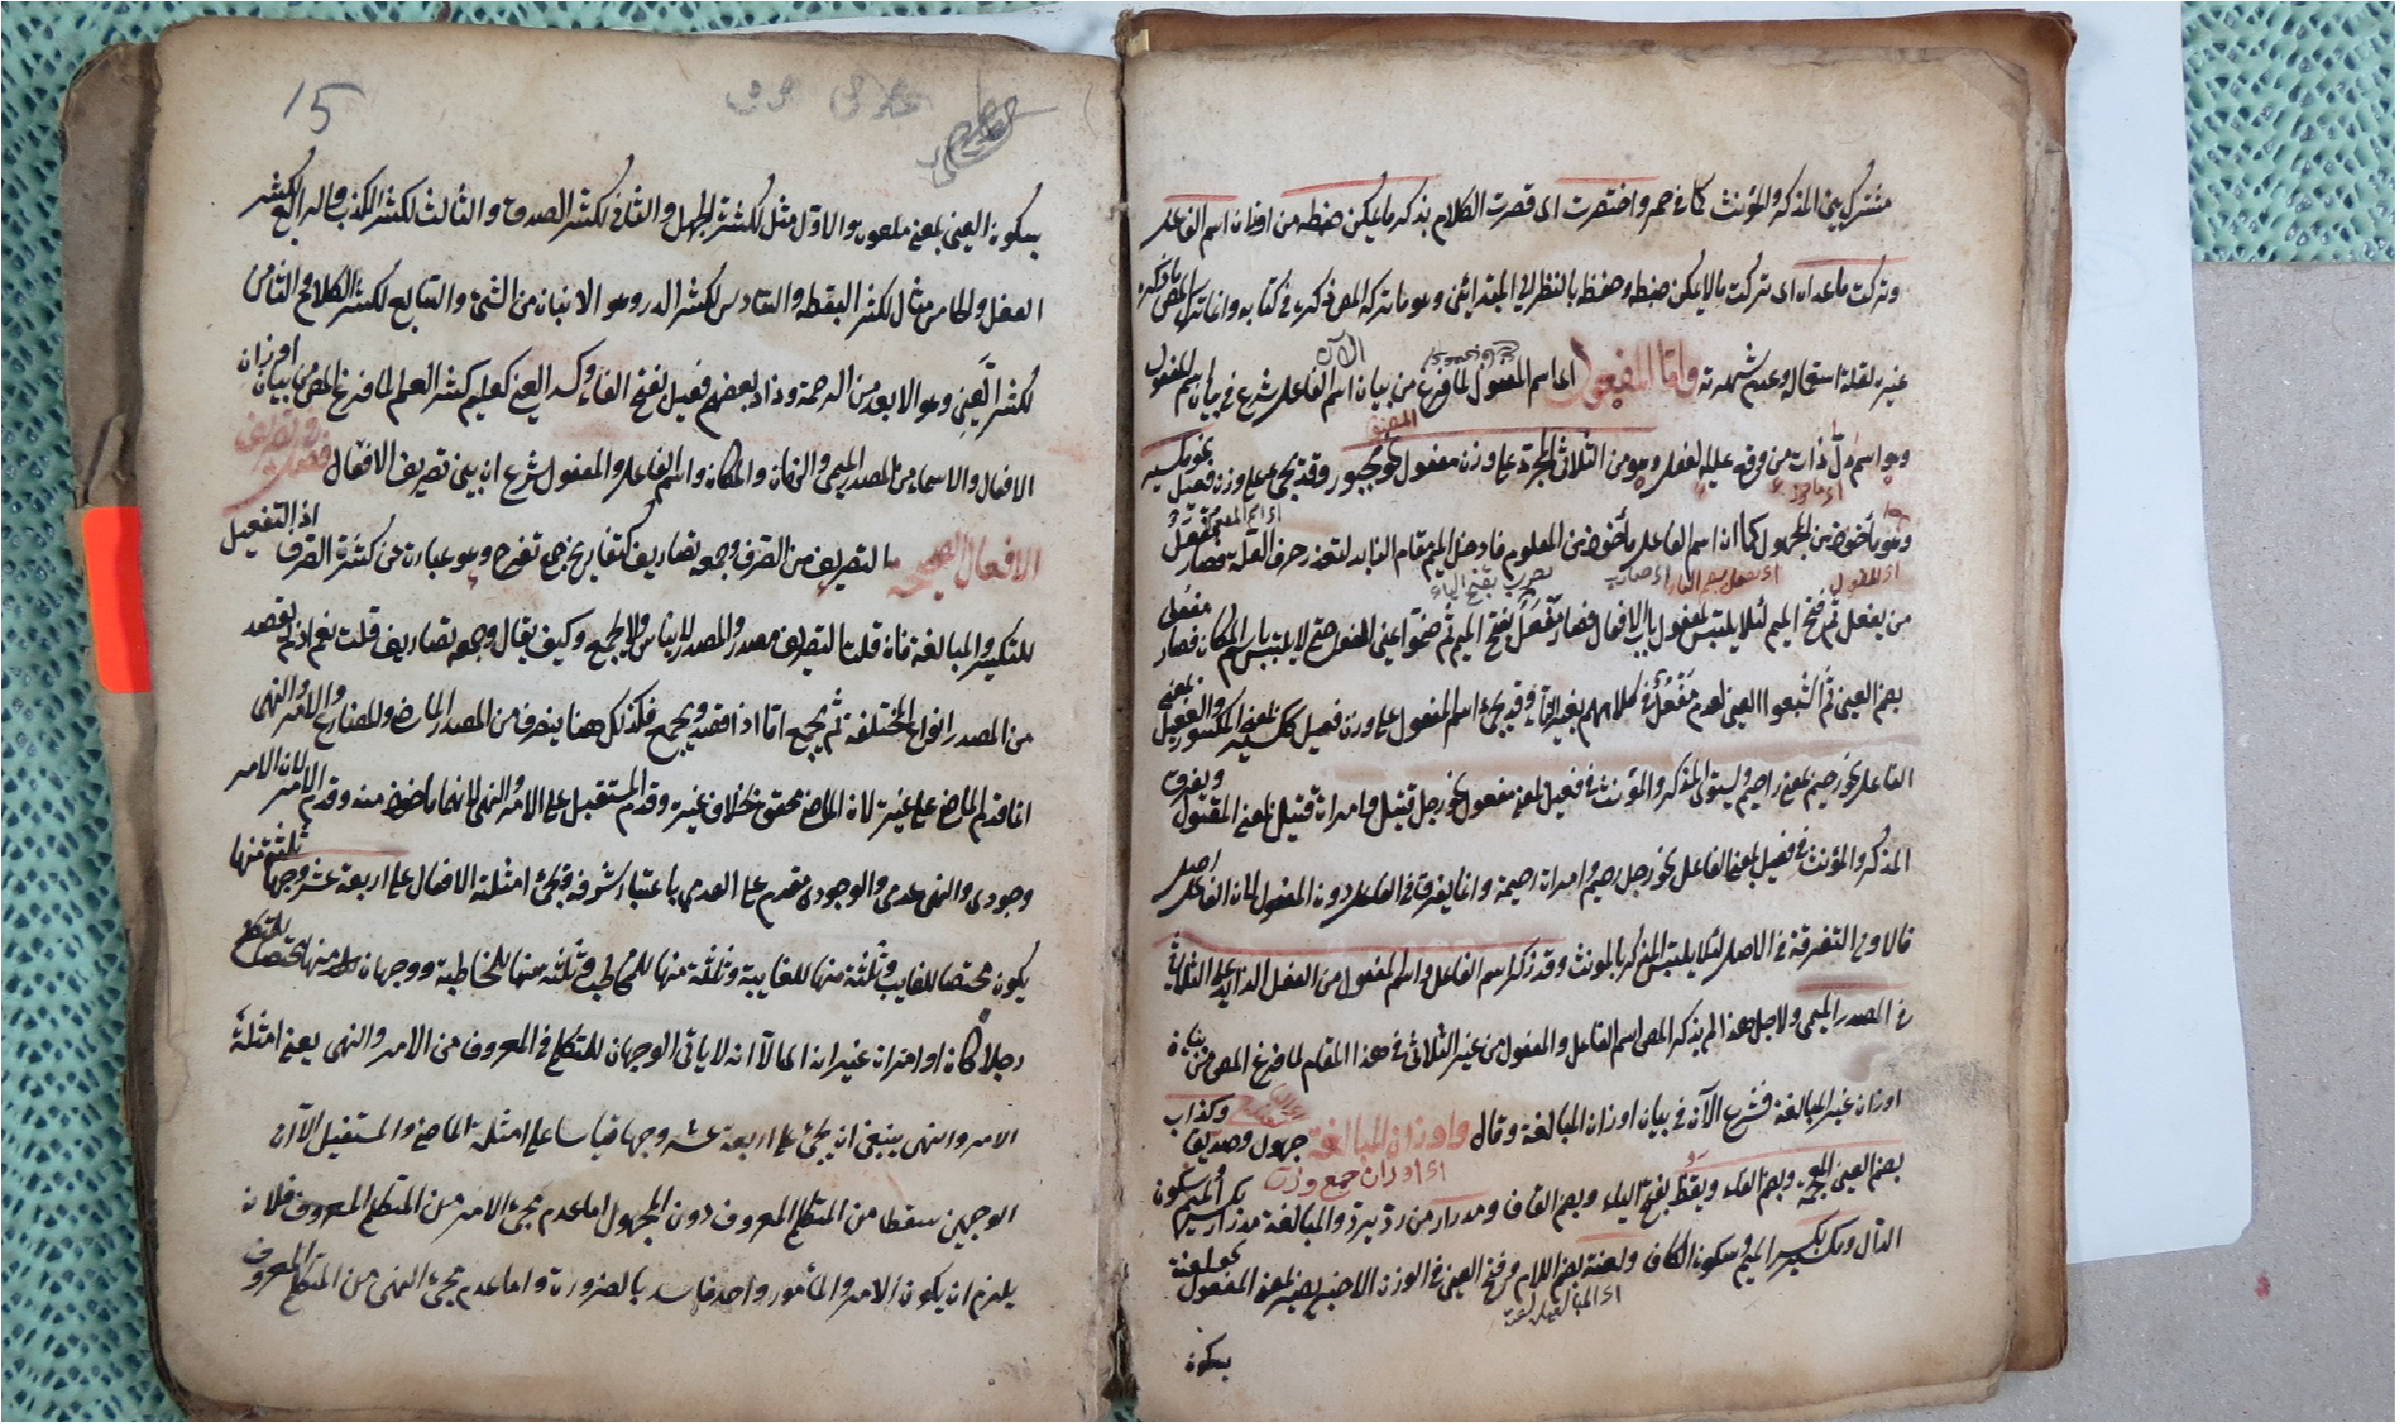 مشترك بين المذكر والمؤنث كما في حمر واختصرت اى قصرت الكلام بذكر ما يمكن ضبطه من اوزان اسم الفاعل
وتركت ماعداه اى تركت مالا يمكن ضبطه وحفظه بالنظر الى المبتدائين وهو ما تركه المص ذكره في كتابه وانما ترك المص ذكر
غيره لقلة استعماله وعدم شهرته واما المفعول اى اسم المفعول لما فرغ من بيان اسم الفاعل شرع في بيان اسم المفعول
وهو اسم دل ذات من وقع عليه الفعل وهو من الثلاثى المجرد على وزن مفعول نحو مجبور وقد يجئ على وزن فعيل نحو كسير
وهو مأخوذ من المجهول كما ان اسم الفاعل مأخوذ من المعلوم فادخل الميم مقام الزايد لتعذر حرف العلة فصار مُفعَل
من يفعل ثم فتح الميم لئلا يلتبس بمفعول باب الافعال فصار مَفعَل بفتح الميم ثم ضموا عين المفعول حتى لا يلتبس باسم المكان فصار مفعل
بضم العين ثم اشبعوا العين لعدم مَفعُل في كلامهم بغير التاء وقد يجئ اسم المفعول على وزن فعيل ككسير بمعنى المكسور والفعيل بمعنى
الفاعل نحو رحيم بمعنى راحم ويستوى المذكر والمؤنث في فعيل بمعنى مفعول نحو رجل قتيل وامراة قتيل بمعنى المقتول ويفرق
المذكر والمؤنث في فعيل بمعنى الفاعل نحو رجل رحيم وامراة رحيمة وانما يفرق في الفاعل دون المفعول لان الفاعل اصل
فالاولى التفرقة في الاصل لئلا يلتبس المذكر بالمونث وقد ذكر اسم الفاعل واسم المفعول من الفعل الزائد على الثلاثى
في المصدر الميمى ولاجل هذا لم يذكر المص اسم الفاعل والمفعول من غير الثلاثى في هذا المقام لما فرغ المص من بيان
اوزان غير المبالغة فشرع الآن في بيان اوزان المبالغة وقال واوزان المبالغة جهول وصديق وكذاب
اى اوزان جمع وزن
بضم العين المعجمة وبضم الفاء ويقظ بفتح الياء وبضم القاف ومدرار من در يدر والمبالغة مدرار بكسر الميم وسكون
الدال ومكسير بكسر الميم وسكون الكاف ولعنة بضم اللام وفتح العين في الوزن الاخير بمعنى المفعول
بسكون
15
بسكون العين بمعنى ملعون والاول مثل لكثير الجهل والثانى لكثير الصدق والثالث لكثير الكذب والرابع لكثير
الغفل والخامس مثال لكثير اليقظه والسادس لكثير الدر وهو الاتيان من الشئ والسابع لكثير الكلام والثامن
لكثير اللعن وهو الابعد من الرحمة وزاد بعضهم فعيل بفتح الفاء وكسر العين كعليم كثير العلم لما فرغ المص من بيان اوزان
الافعال والاسماء من المصدر الميمى والزمان والمكان واسم الفاعل والمفعول شرع ان يبين تصريف الافعال فصل في تصريف
الافعال الصحيحة التصريف من الصرف وجمعه تصاريف كتفاريح جمع تفرح وهو عبارة عن كثرة الصرف اذ التفعيل
للتكثير والمبالغة فان قلت التصريف مصدر والمصدر لا يثنى ولا يجمع وكيف يقال وجمعه تصاريف قلت نعم اذ لم يقصد
من المصدر انواع المختلفة ثم يجمع اما اذا قصد ويجمع فكذلك هنا ينصرف من المصدر الماضى والمضارع والامر والنهى
انما قدم الماضى على غيره لان الماضى محقق بخلاف غيره وقدم المستقبل على الامر والنهى لانهما مأخوذ منه وقدم الامر لان الامر
وجودى والنهى عدمى والوجودى مقدم على العدمى باعتبار شرفه فيجئ امثلة الافعال على اربعة عشر وجها ثلثة منها
يكون مختصا للغايب وثلثة منها للغايبة وثلثة منها للمخاطب وثلثه منها للمخاطبة ووجهان منها مختصان للمتكلم
رجلا كان او امراة غير ان الا انه لا ياتى الوجهان للمتكلم في المعروف من الامر والنهى يعنى امثلة
الامر والنهى ينبغى ان يجئ على اربعة عشر وجها قياسا على امثلة الماضى والمستقبل الا ان
الوجهين سقطا من المتكلم المعروف دون المجهول اما عدم مجئ الامر من المتكلم المعروف فلان
يلزم ان يكون الامر والمأمور واحد فاسد بالضرورة واما عدم مجئ النهى من المتكلم المعروف